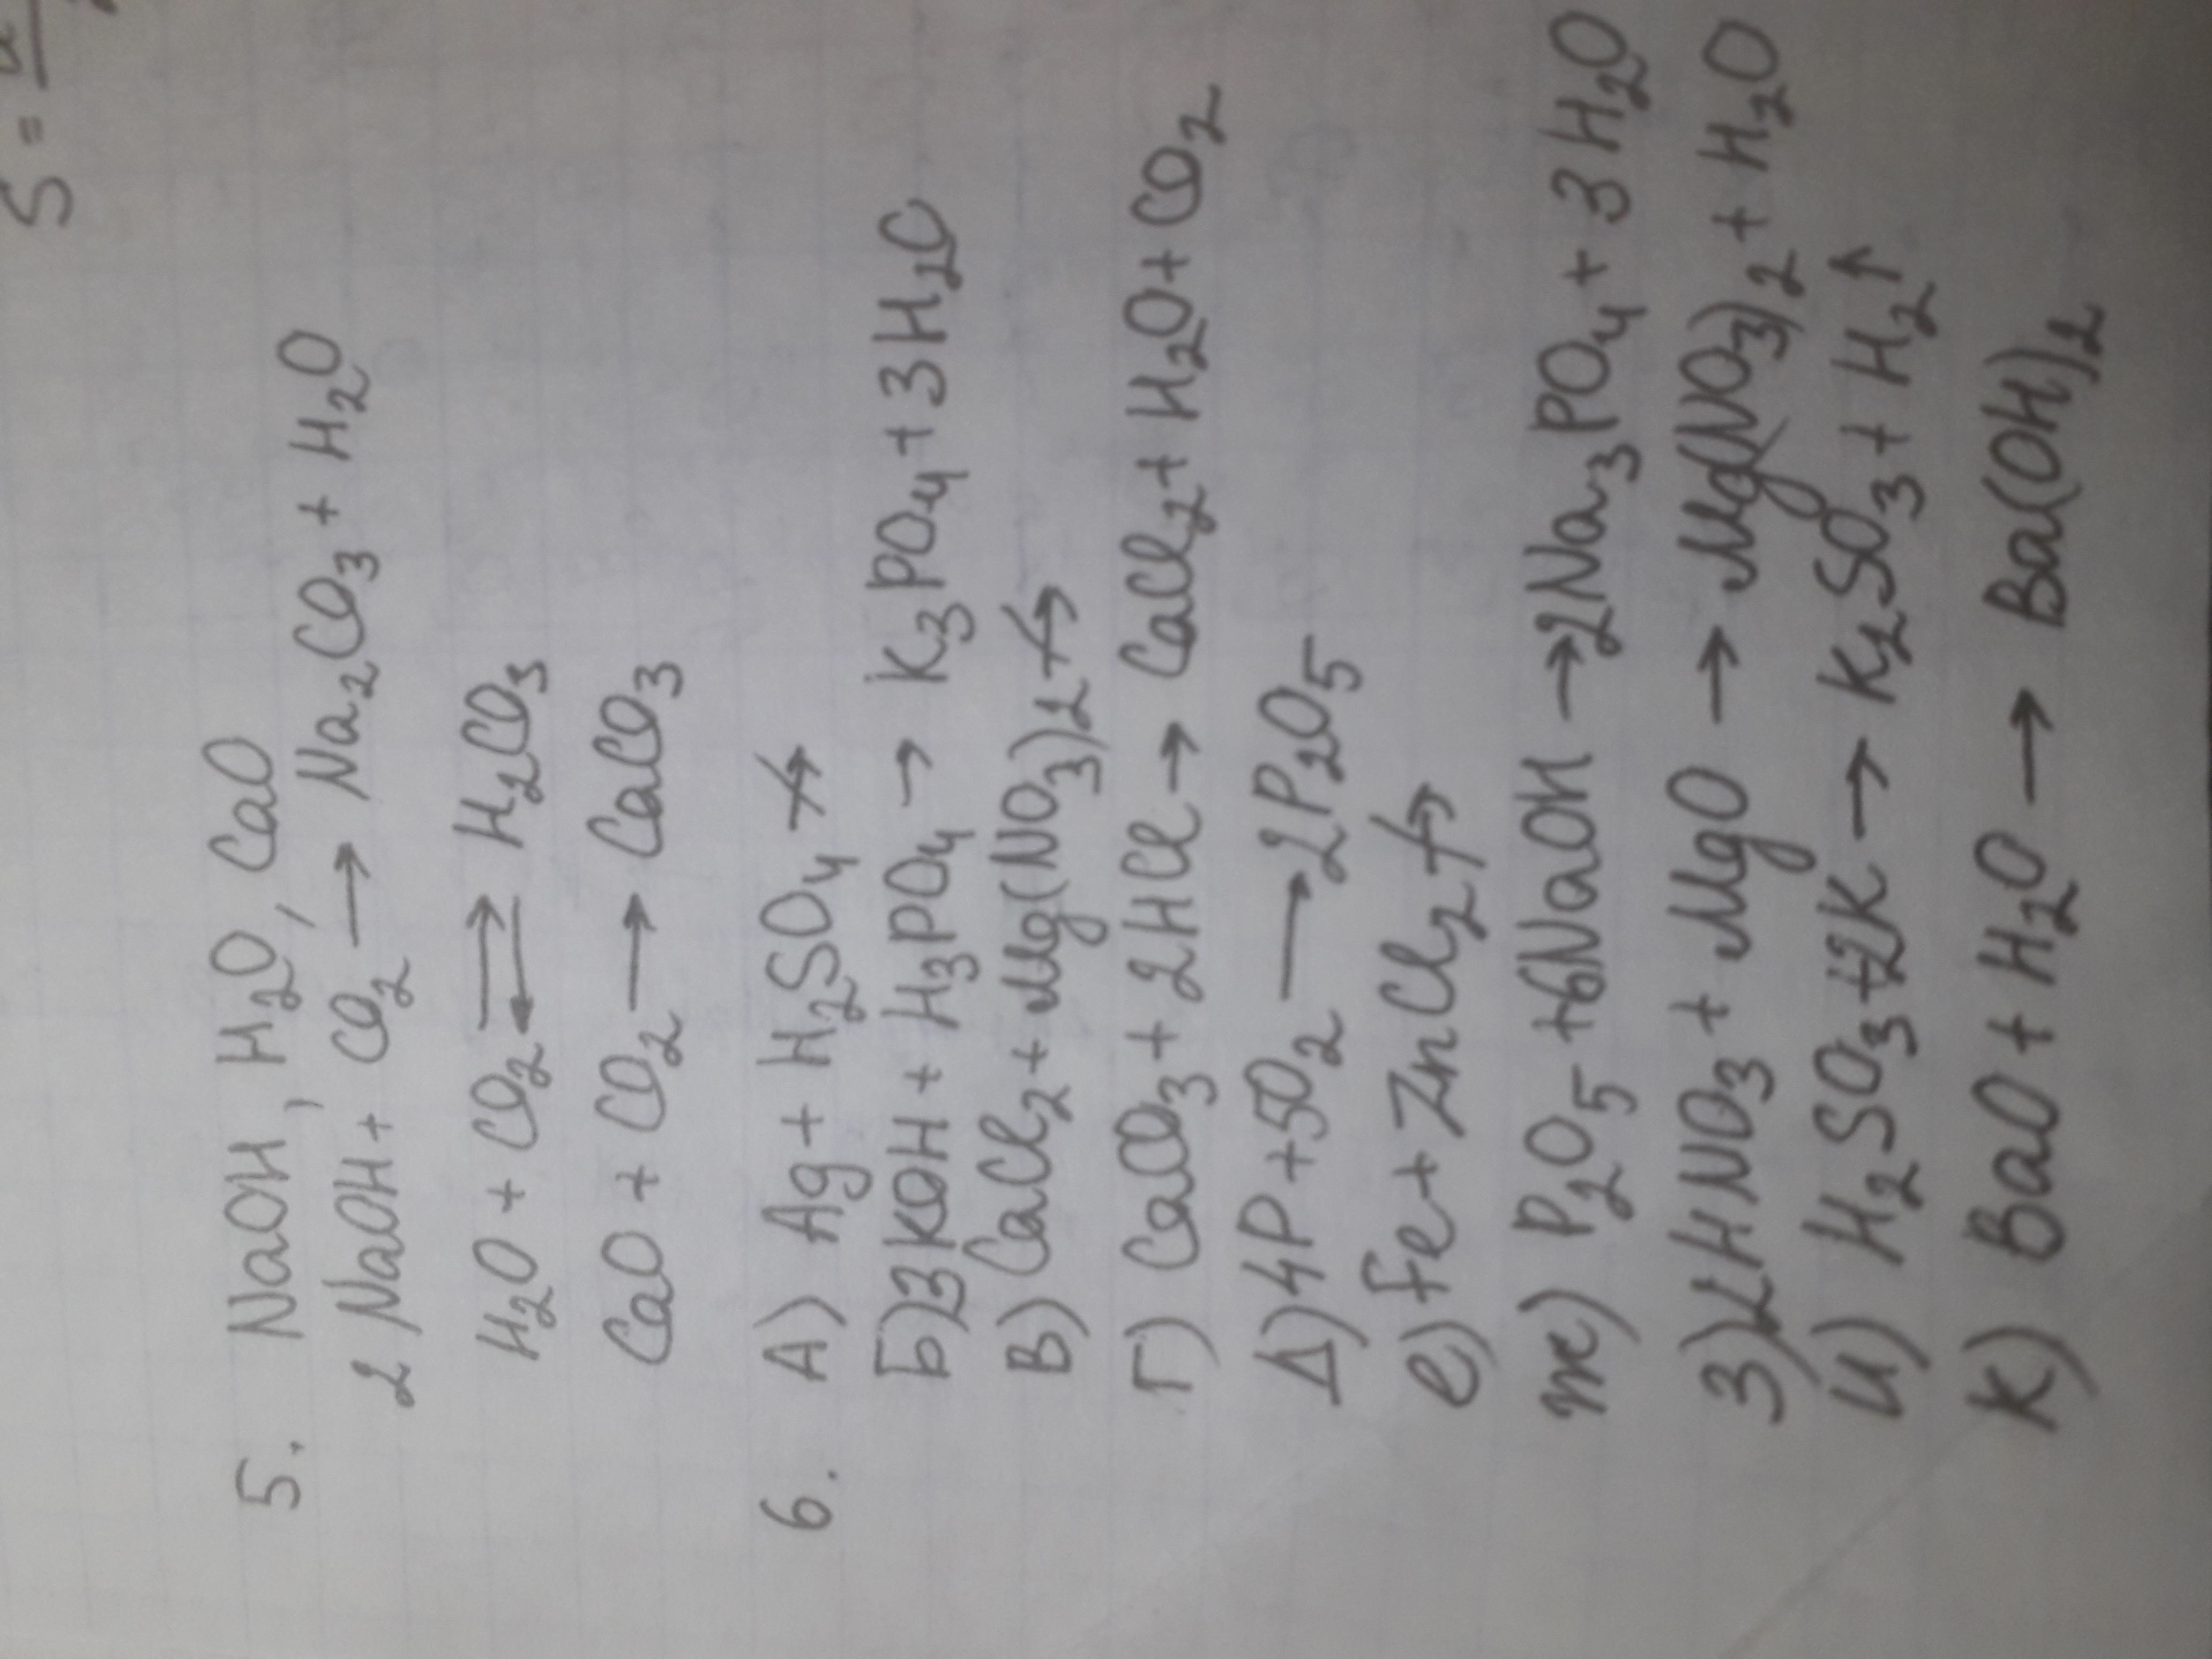 S =
5. NaOH, H₂O, CaO
2 NaOH + CO₂ → Na₂CO₃ + H₂O
H₂O + CO₂ ⇄ H₂CO₃
CaO + CO₂ → CaCO₃
6. А) Ag + H₂SO₄ ↛
Б) 3KOH + H₃PO₄ → K₃PO₄ + 3H₂O
В) CaCl₂ + Mg(NO₃)₂ ↛
Г) CaCO₃ + 2HCl → CaCl₂ + H₂O + CO₂
Д) 4P + 5O₂ → 2P₂O₅
е) Fe + ZnCl₂ ↛
ж) P₂O₅ + 6NaOH → 2Na₃PO₄ + 3H₂O
З) 2HNO₃ + MgO → Mg(NO₃)₂ + H₂O
И) H₂SO₃ + 2K → K₂SO₃ + H₂↑
К) BaO + H₂O → Ba(OH)₂